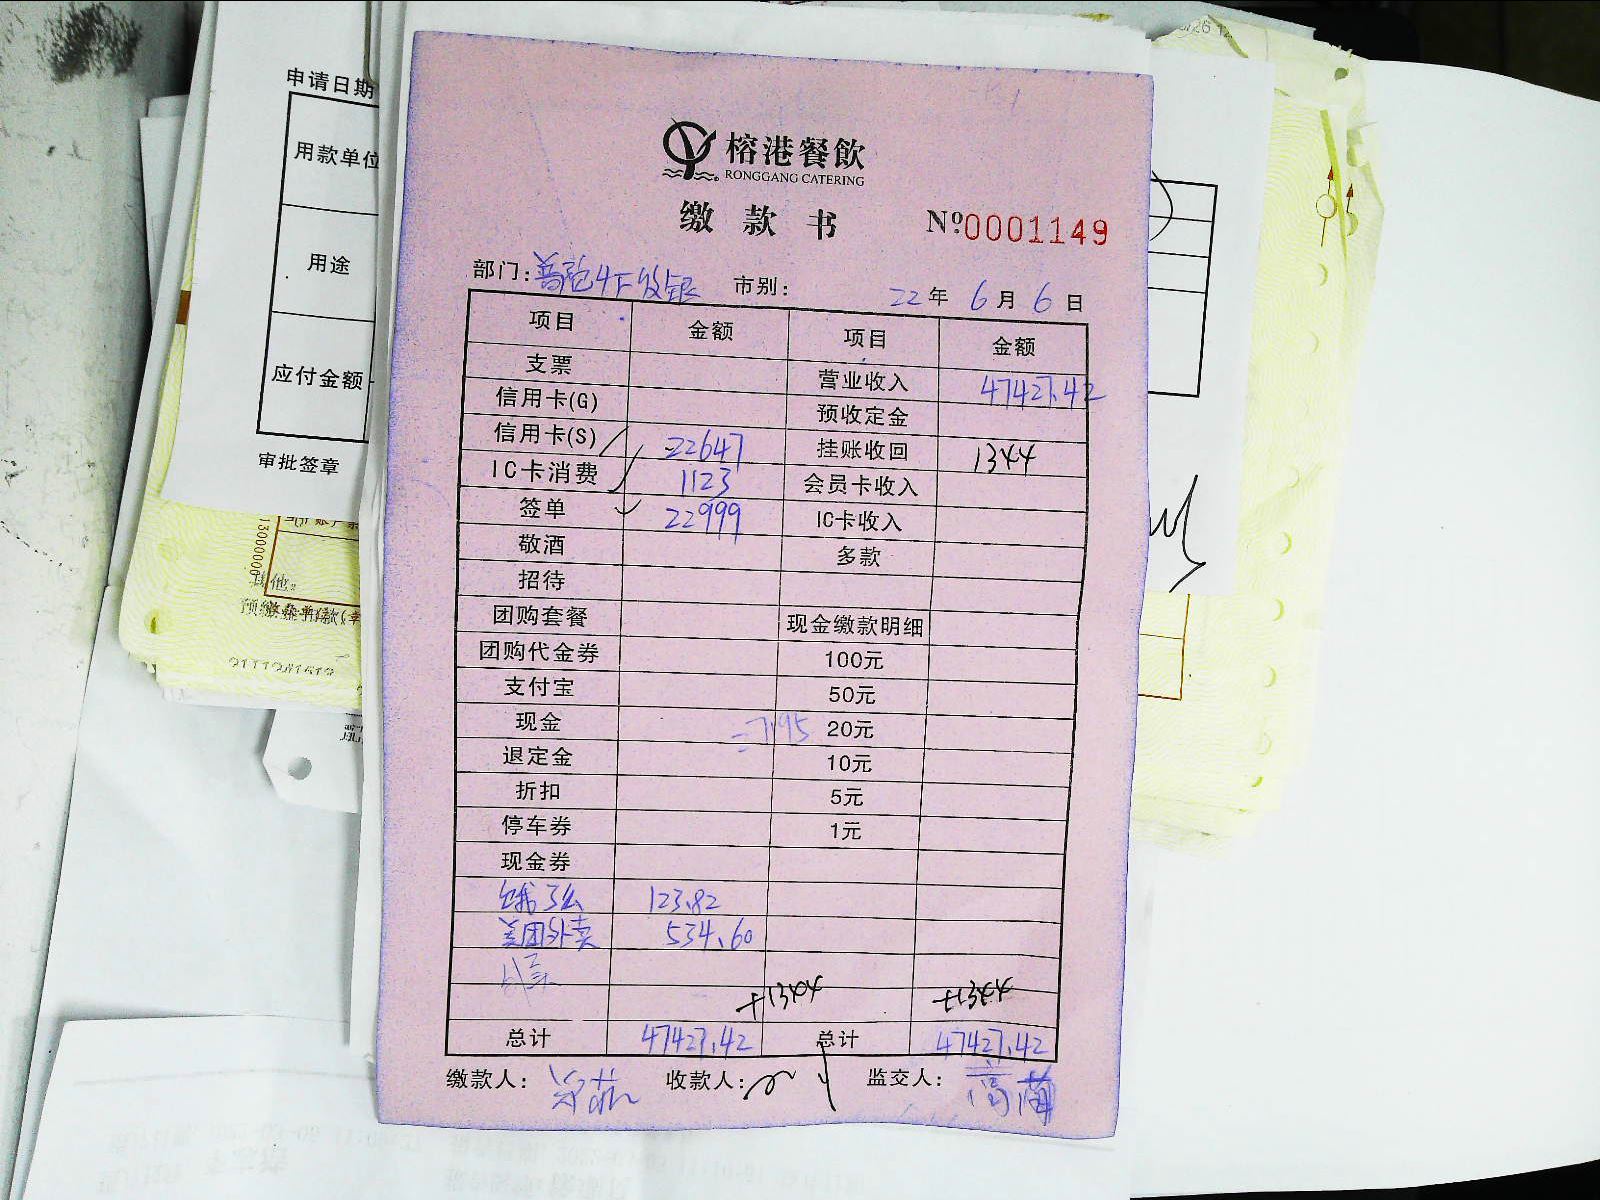 申请日期
用款单位
用途
应付金额
审批签章
榕港餐飲
RONGGANG CATERING
缴款书
Nº0001149
部门: 市别: 22年 6月 6日
项目 金额 项目 金额
支票 营业收入 47427.42
信用卡(G) 预收定金
信用卡(S) 22647 挂账收回 1344
IC卡消费 1123 会员卡收入
签单 22999 IC卡收入
敬酒 多款
招待
团购套餐 现金缴款明细
团购代金券 100元
支付宝 50元
现金 20元
退定金 10元
折扣 5元
停车券 1元
现金券
饿了么 123.82
美团外卖 534.60
+1344 +1344
总计 47427.42 总计 47427.42
缴款人: 收款人: 监交人: